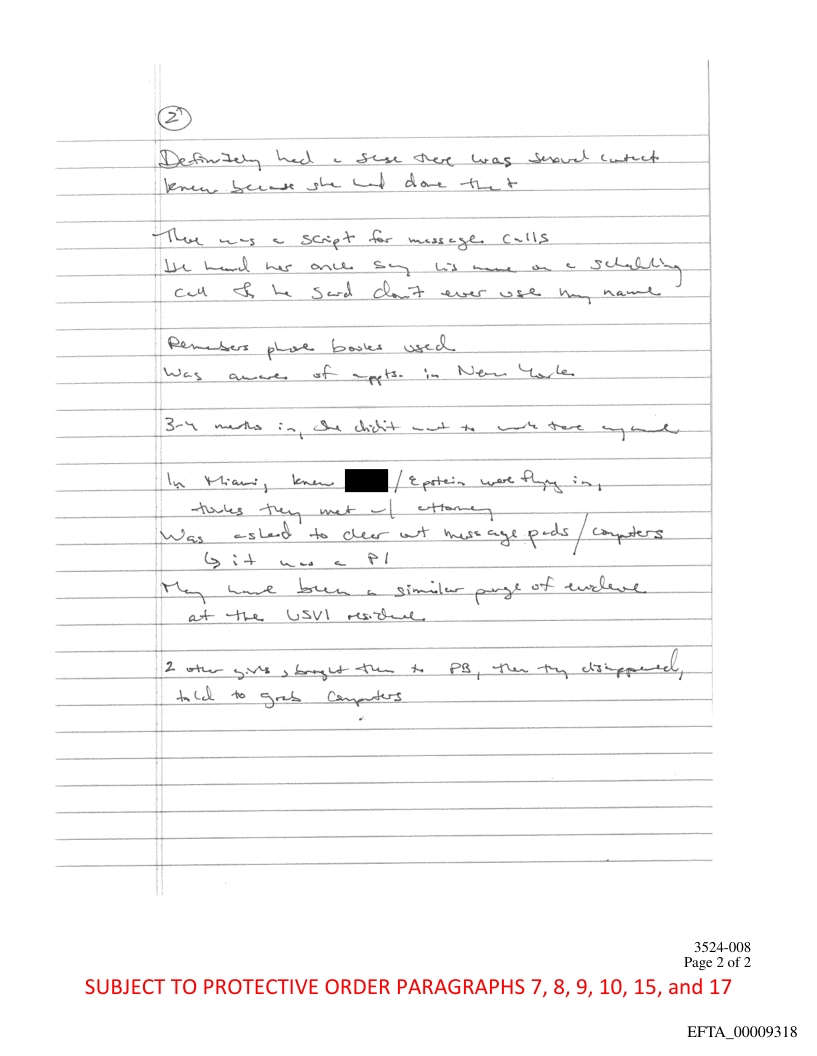 2
Definitely had a sense there was sexual contact
knew because she had done that
There was a script for massage calls
He heard her once say his name on a scheduling
call & he said don't ever use my name
Remembers phone books used
Was aware of appts. in New York
3-4 months in, she didn't want to work there anymore
In Miami, knew / Epstein were flying in,
thinks they met w/ attorney
Was asked to clear out message pads / computers
↳ it was a PI
May have been a similar purge of evidence
at the USVI residence
2 other girls, brought them to PB, then they disappeared,
told to grab computers
3524-008
Page 2 of 2
SUBJECT TO PROTECTIVE ORDER PARAGRAPHS 7, 8, 9, 10, 15, and 17
EFTA_00009318